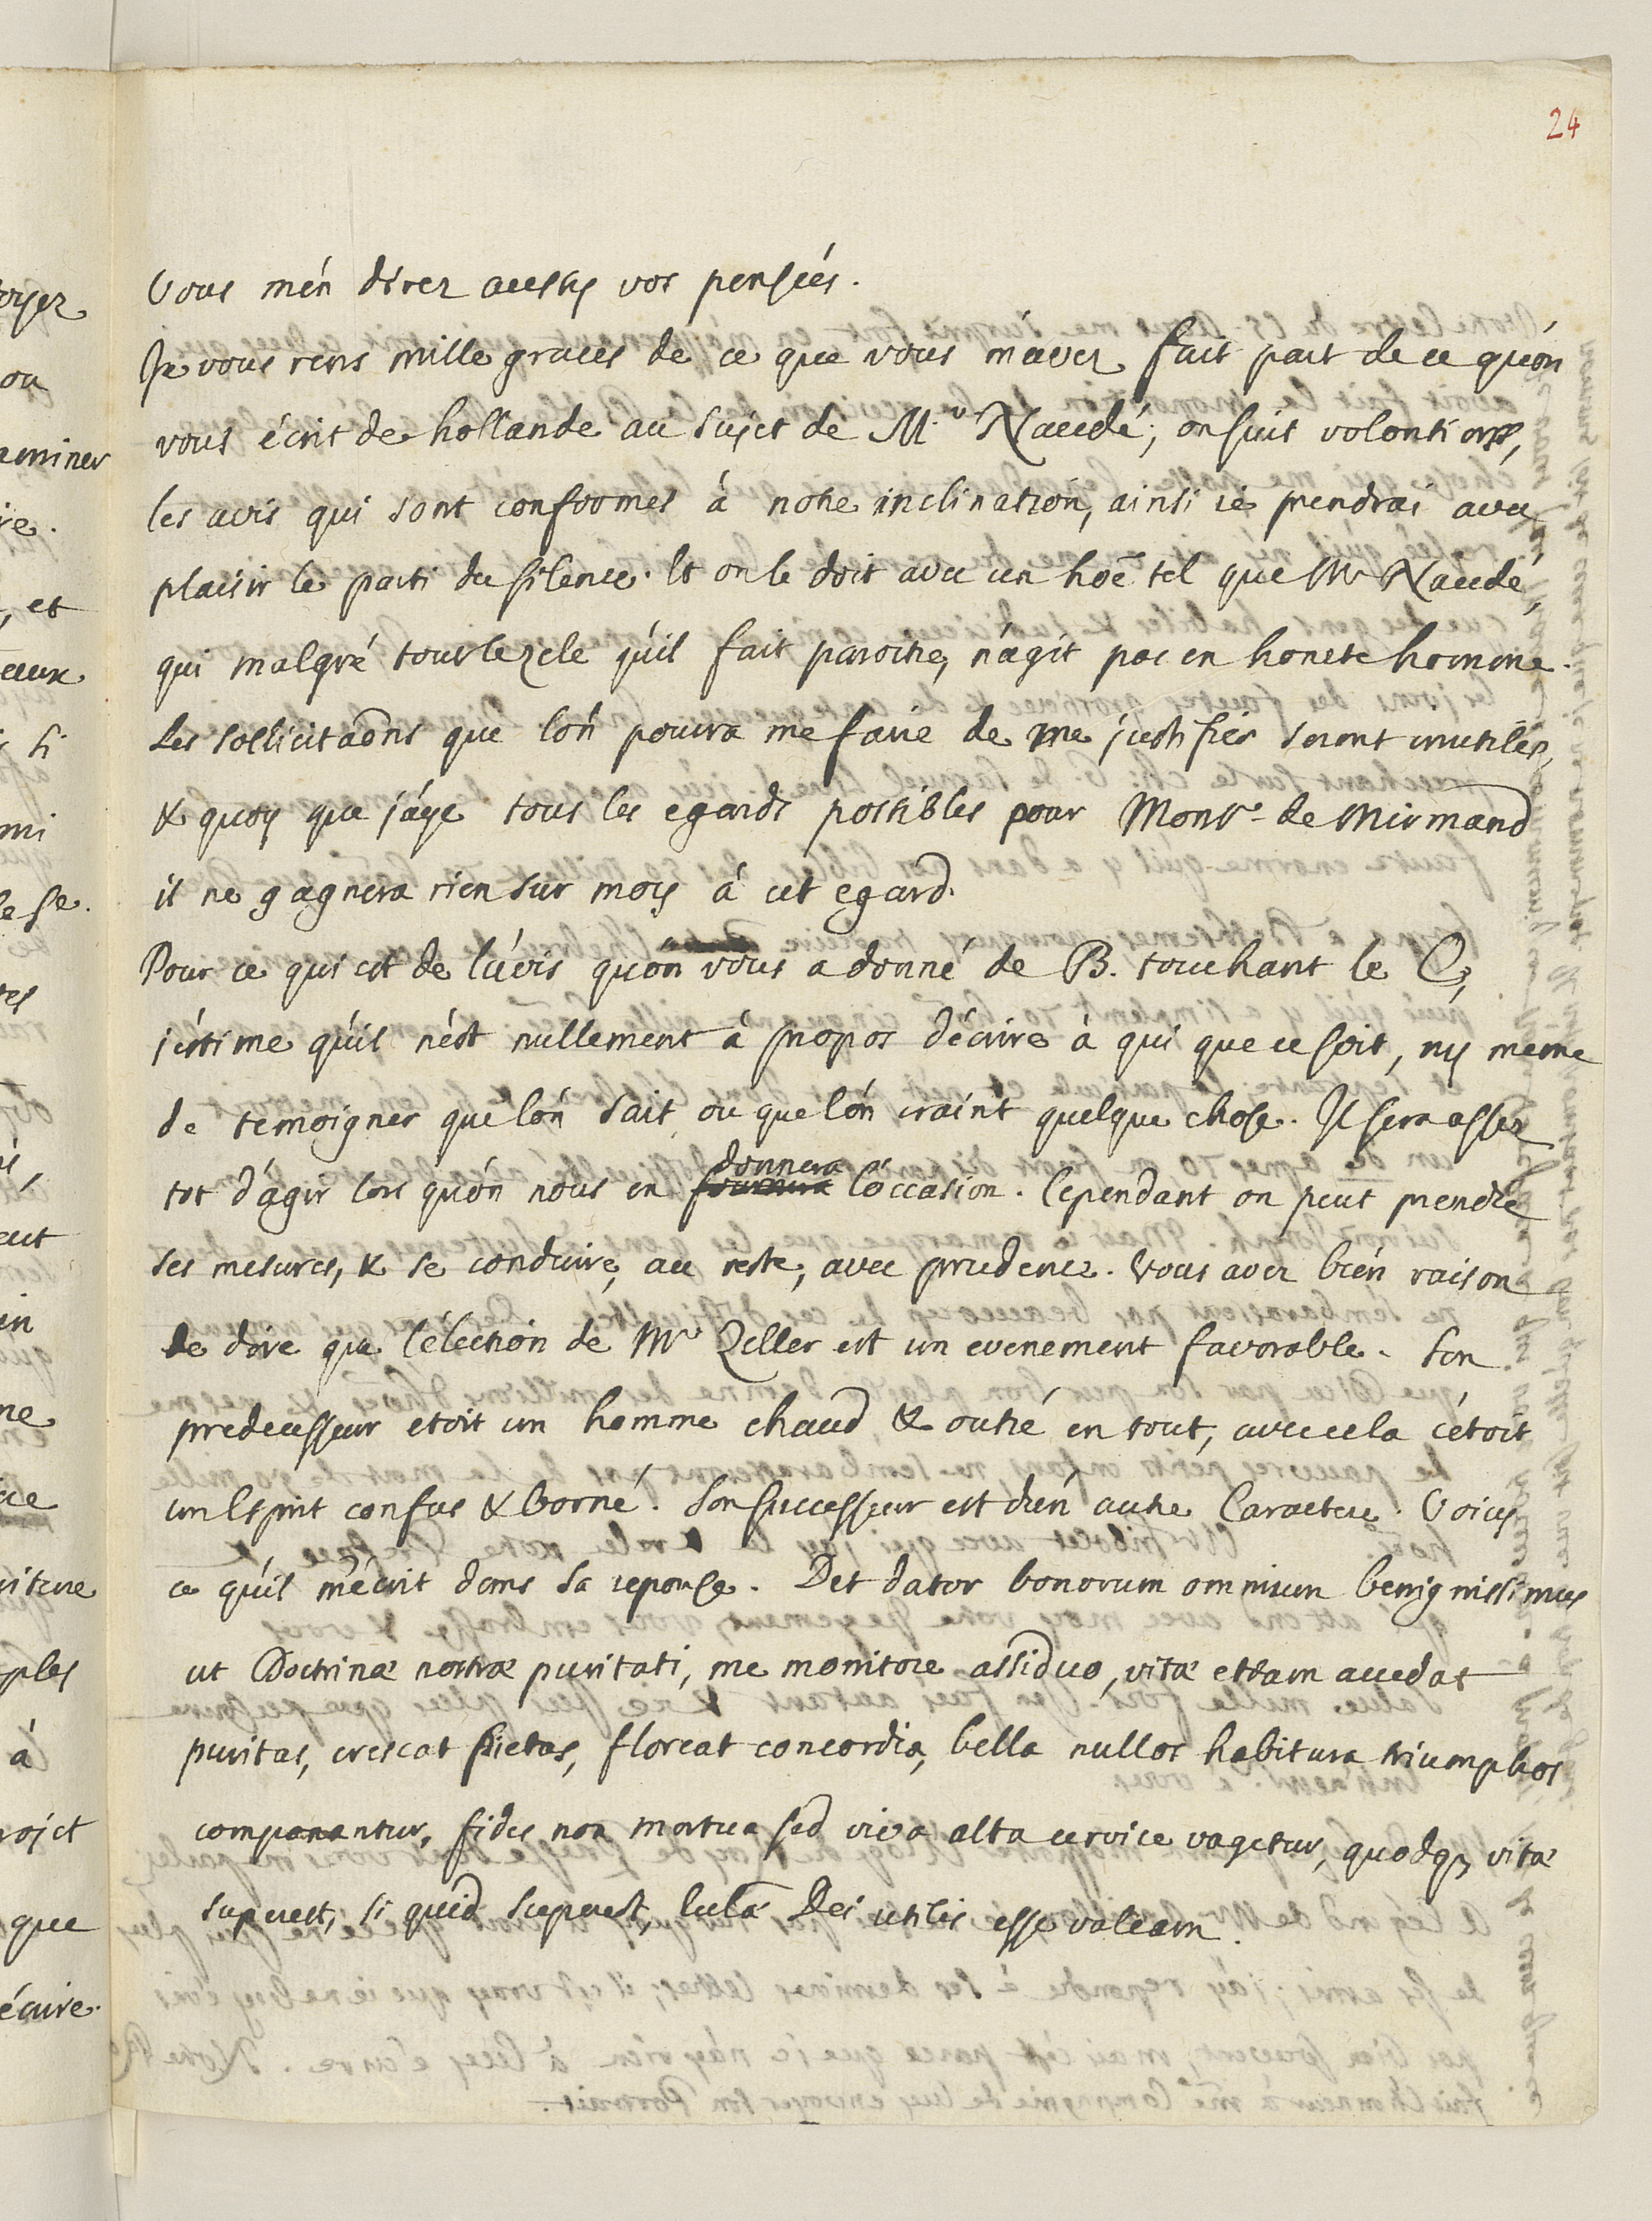 24
Vous m'en direz aussy vos pensées.
Je vous rens mille graces de ce que vous m'avez fait part de ce qu'on
vous écrit de hollande au sujet de M.r Naudé; on suit volontiers,
les avis qui sont conformes à notre inclination, ainsi ie prendrai avec
plaisir le parti du silence. Et on le doit avec un hoe tel que Mr Naudé,
qui malgré tout le zele qu'il fait paroitre, n'agit pas en honete homme.
Les sollicitaons que l'on pourra me faire de me justifier seront inutiles,
& quoy que j'aye tous les egards possibles pour Monsr de Mirmand
il ne gagnera rien sur moy à cet egard.
Pour ce qui est de l'avis qu'on vous a donné de B. touchant le C,
j'estime qu'il n'est nullement à propos d'écrire à qui que ce soit, ny meme
de temoigner que l'on sait ou que l'on craint quelque chose. Il sera assez
tot d'agir lors qu'on nous en donnera l'occasion. Cependant on peut prendre
ses mesures, & se conduire, au reste, avec prudence. Vous avez bien raison
de dire que l'élection de Mr Zeller est un evenement favorable. Son
predecesseur etoit un homme chaud & outré en tout, avec cela c'étoit
un Esprit confus & borné. Son successeur est d'un autre Caractere. Voicy
ce qu'il m'écrit dans sa reponse. Det dator bonorum omnium benignissimus
ut Doctrinæ nostræ puritati, me monitore assiduo, vitæ etiam accedat
puritas, crescat Pietas, floreat concordia, bella nullos habitura triumphos
componantur, fides non mortua sed viva alta cervice vagetur, quodq, vitæ
superest, si quid superest, Eccla Dei utilis esse valeam.